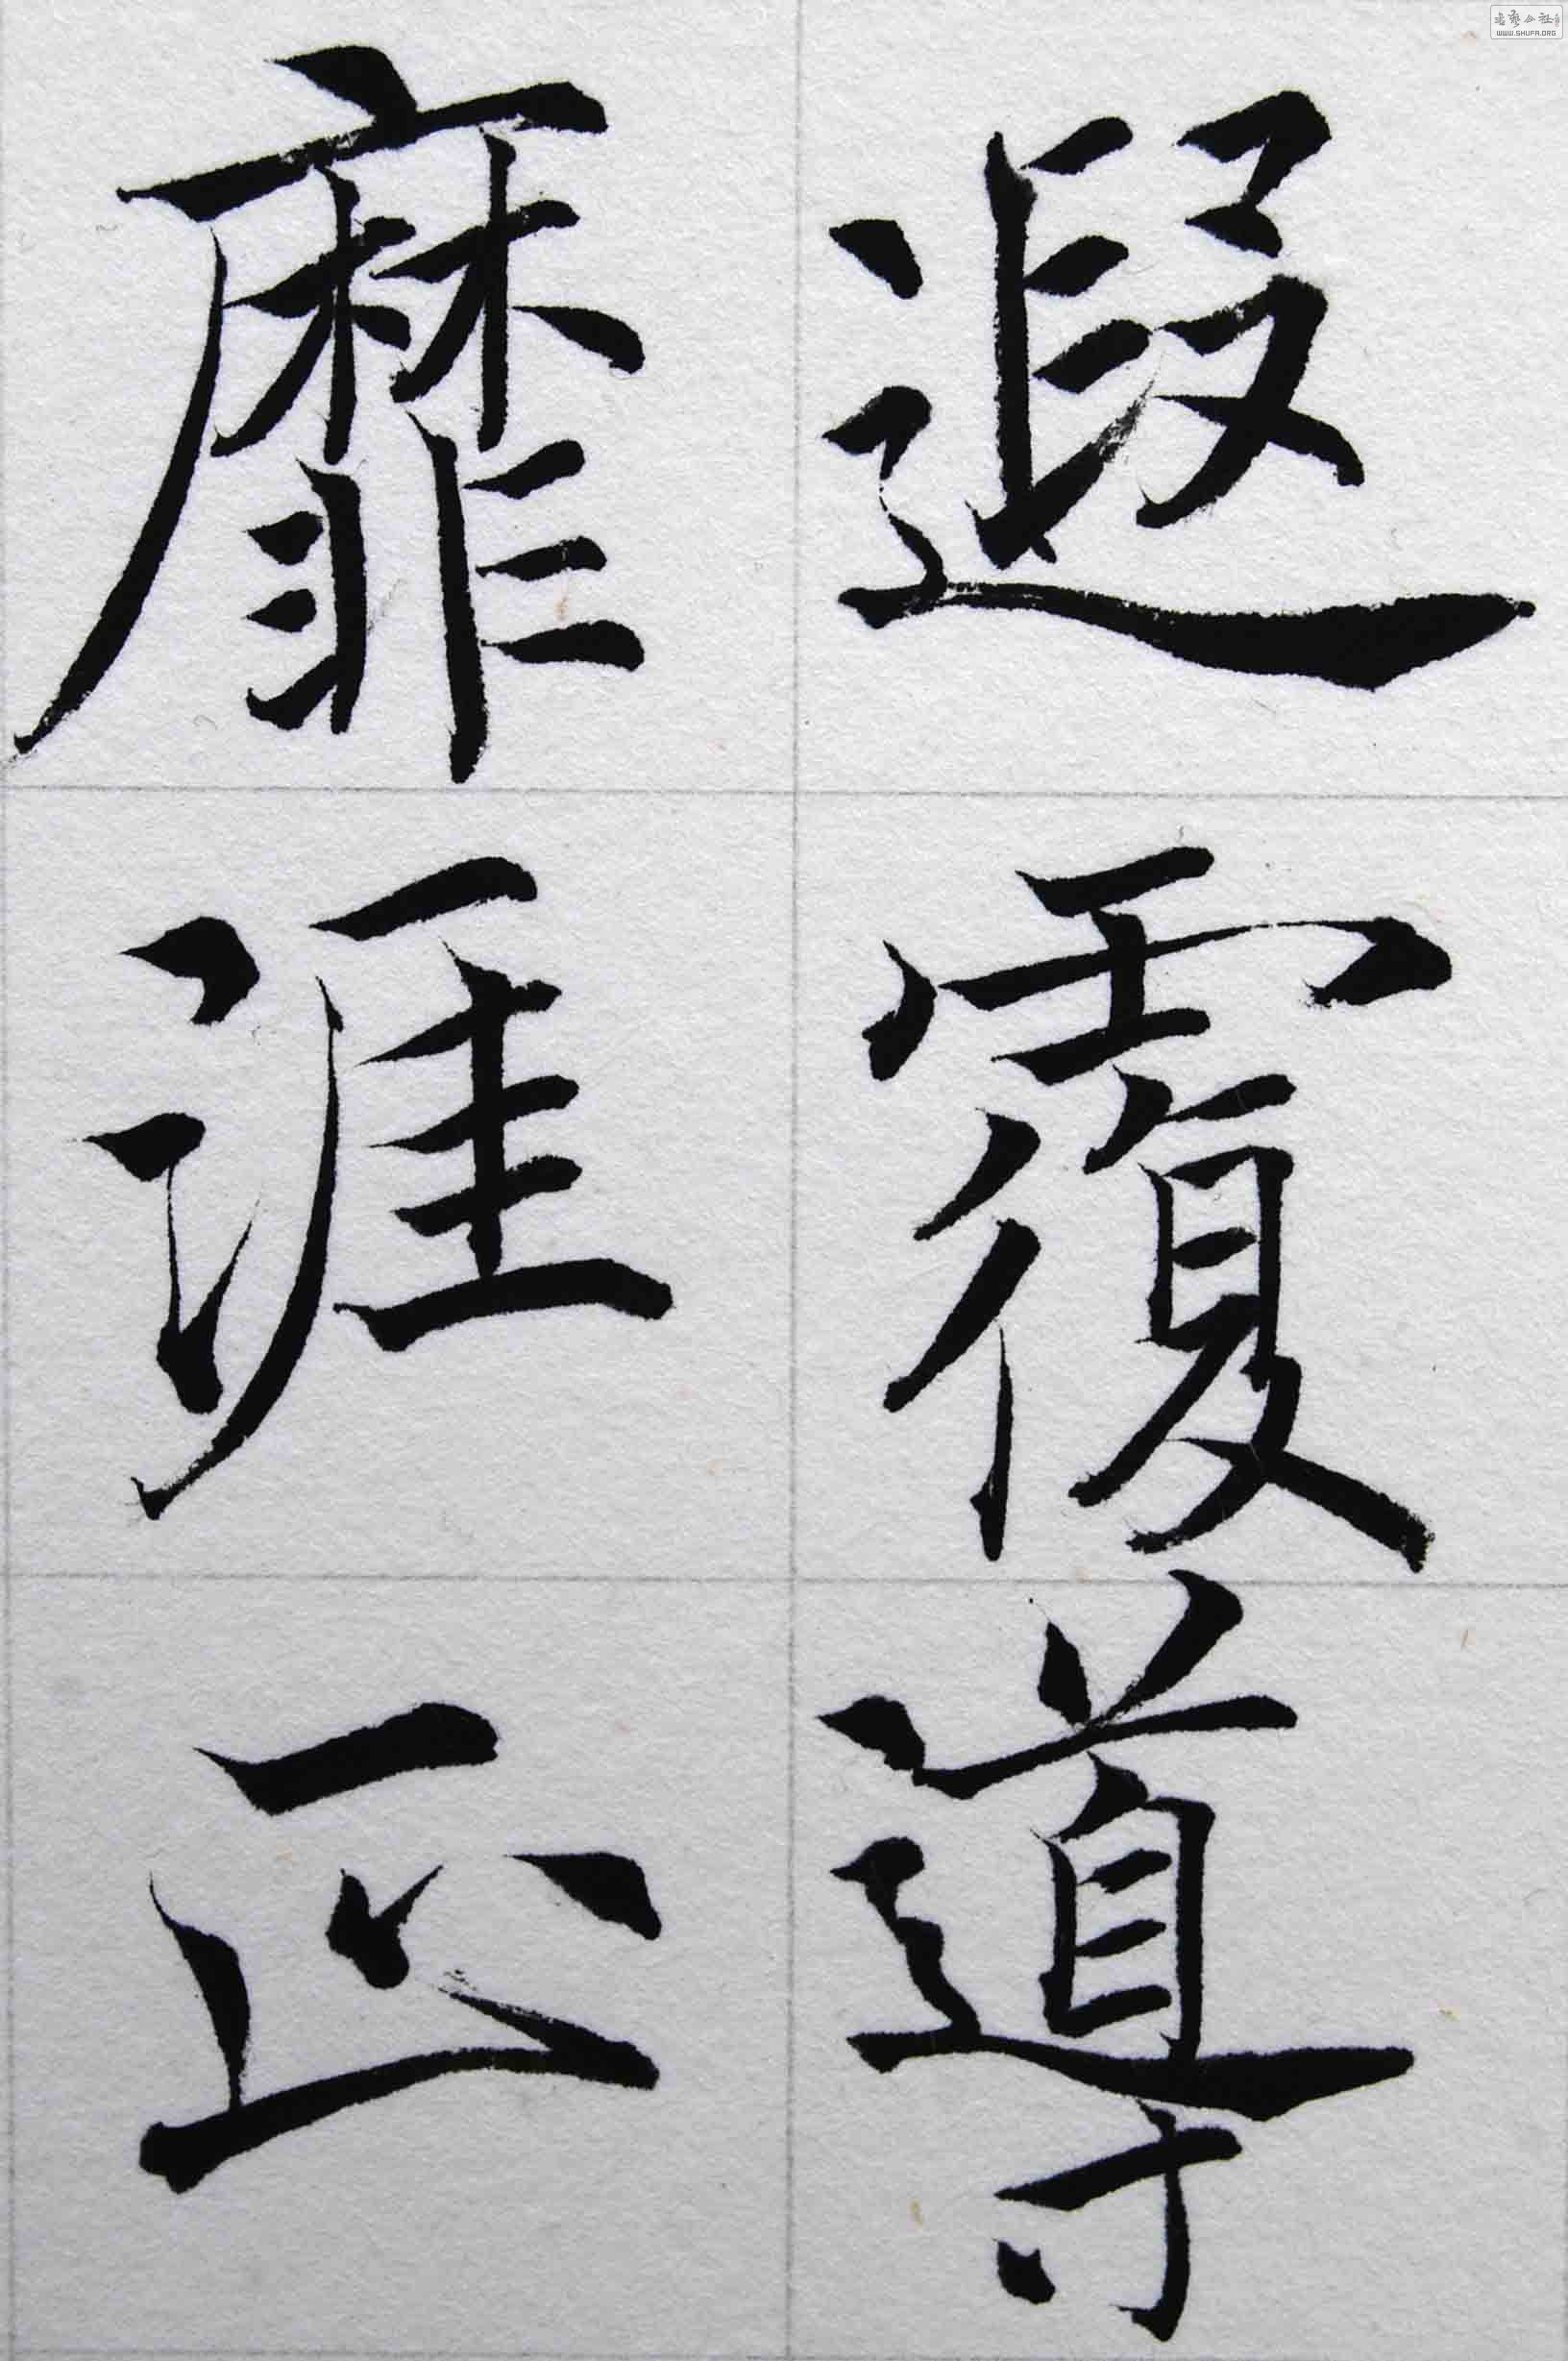 遐覆導
靡涯正
书艺公社
WWW.SHUFA.ORG